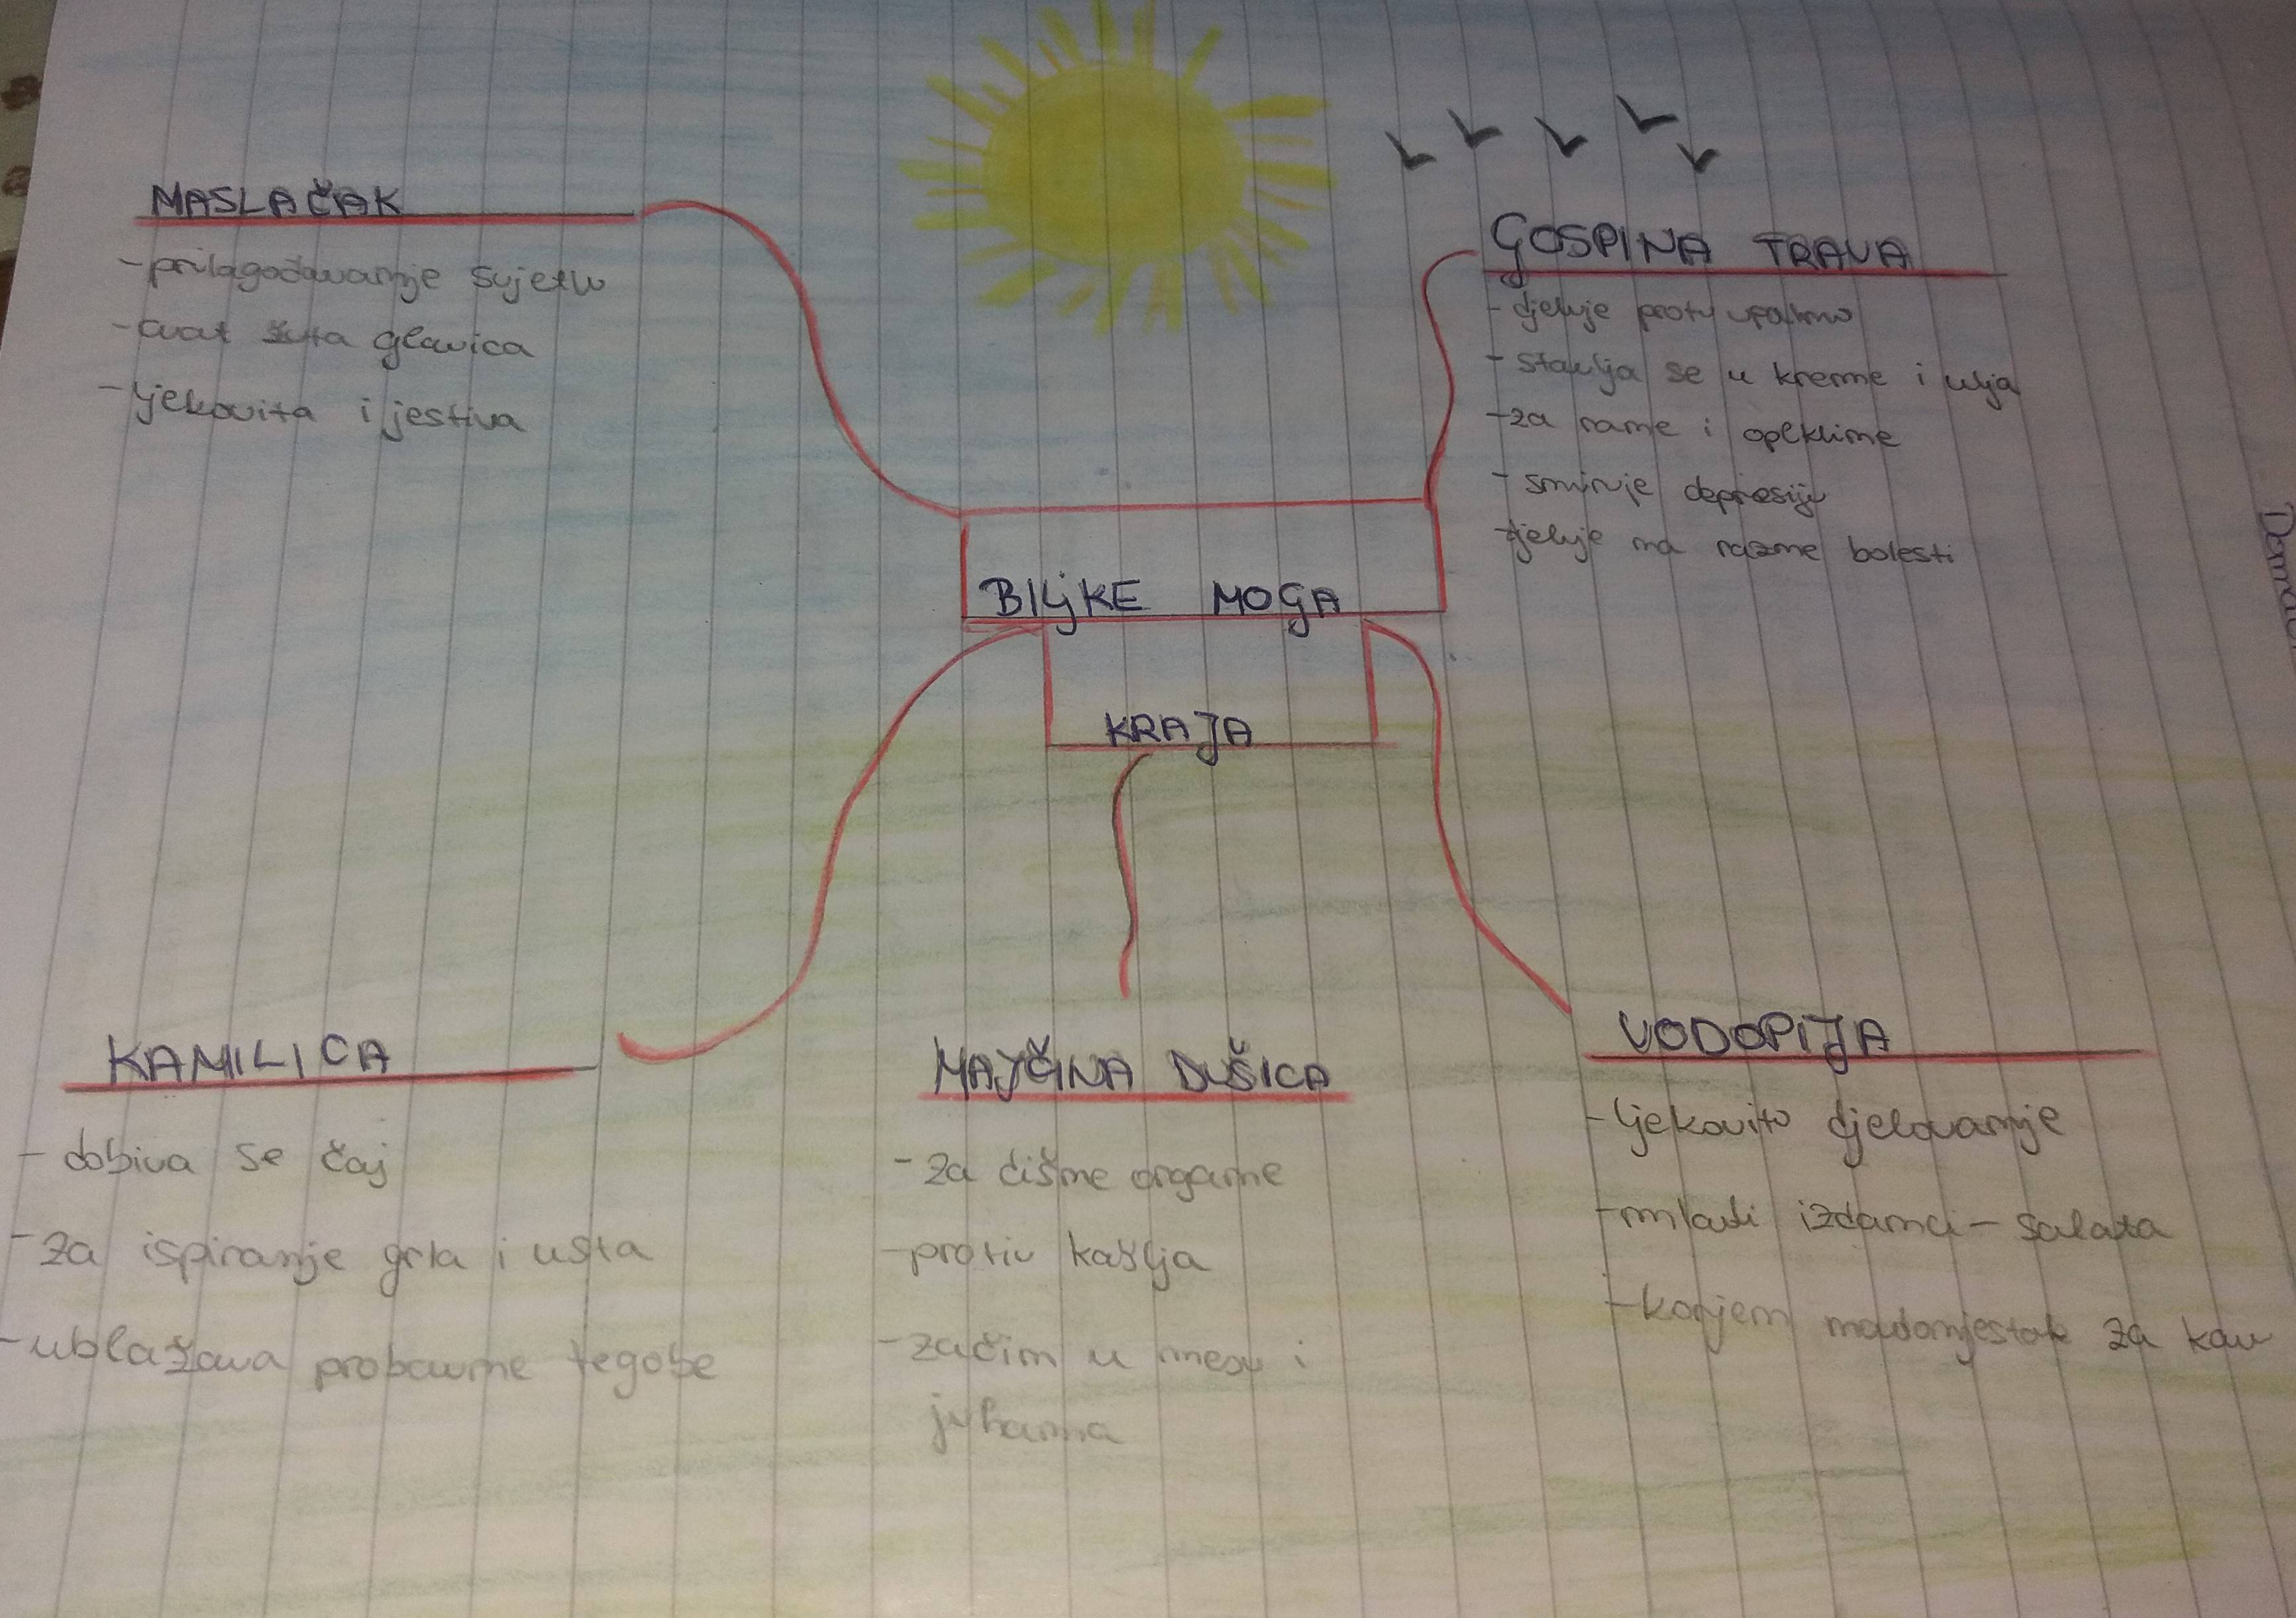 MASLAČAK
- prilagođavanje svjetlu
- cvat žuta glavica
- ljekovita i jestiva
GOSPINA TRAVA
- djeluje protuupalno
- stavlja se u kreme i ulja
- za rane i opekline
- smiruje depresiju
- djeluje na razne bolesti
BILJKE MOGA
KRAJA
KAMILICA
- dobiva se čaj
- za ispiranje grla i usta
- ublažava probavne tegobe
MAJČINA DUŠICA
- za dišne organe
- protiv kašlja
- začin u mesu i
juhama
VODOPIJA
- ljekovito djelovanje
- mladi izdanci - salata
- korjen nadomjestak za kavu